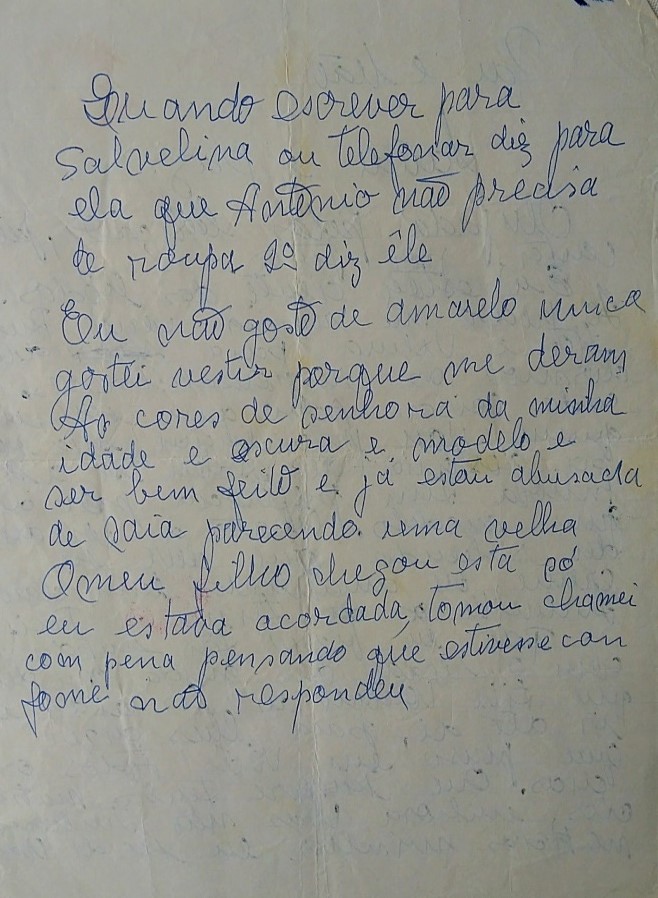 Quando escrever para
Salvelina ou telefonar diz para
ela que Antônio não precisa
de roupa diz êle
Eu não gosto de amarelo nunca
gostei vestir porque me deram
As cores de senhora da minha
idade e escura e modelo e
ser bem feito e já estou abusada
de saia parecendo uma velha
O meu filho chegou esta só
eu estava acordada, tomou chamei
com pena pensando que estivesse con
fome não respondeu